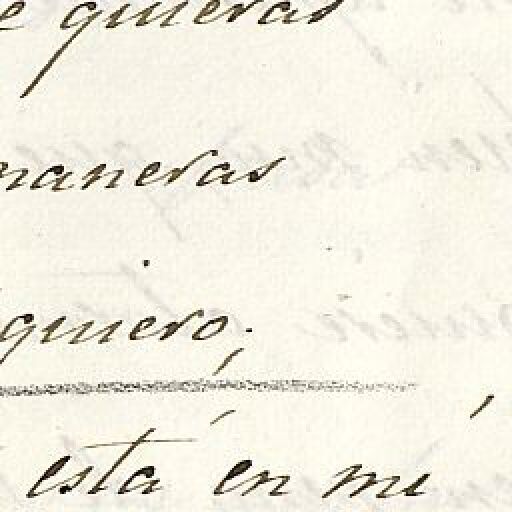 e quieras
maneras
quiero;
está en mí